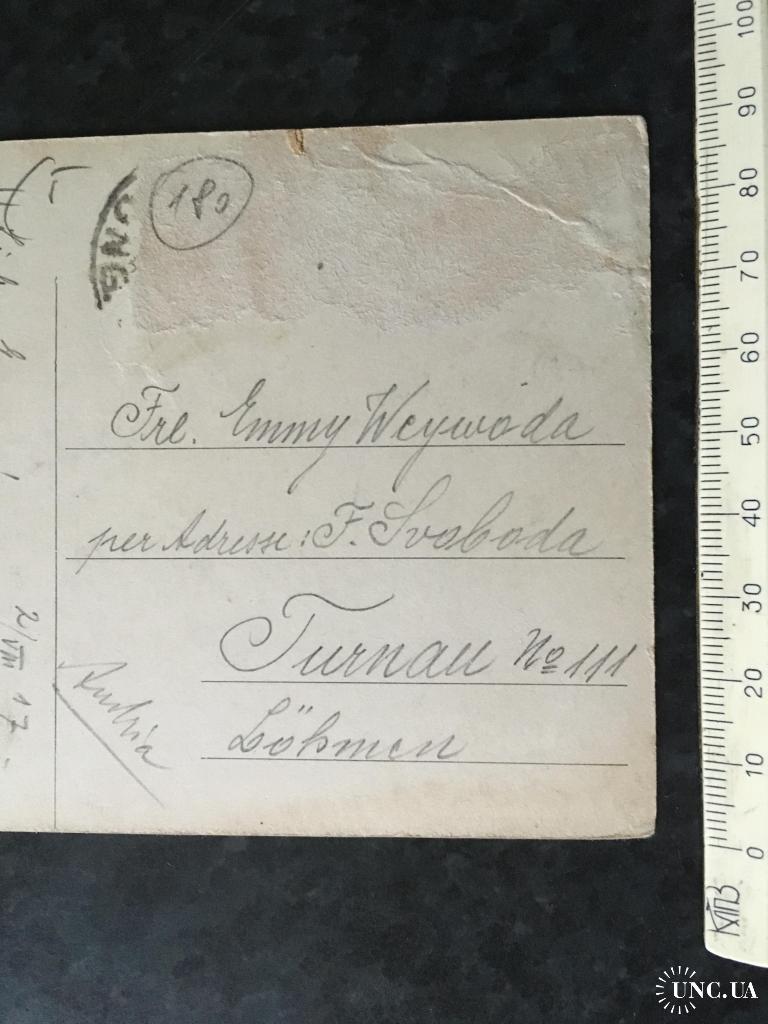 180
Frl. Emmy Weywoda
per Adresse: F. Svoboda
Turnau No 111
Böhmen
Austria
2/VIII 17.
100
90
80
70
60
50
40
30
20
10
0
UNC.UA